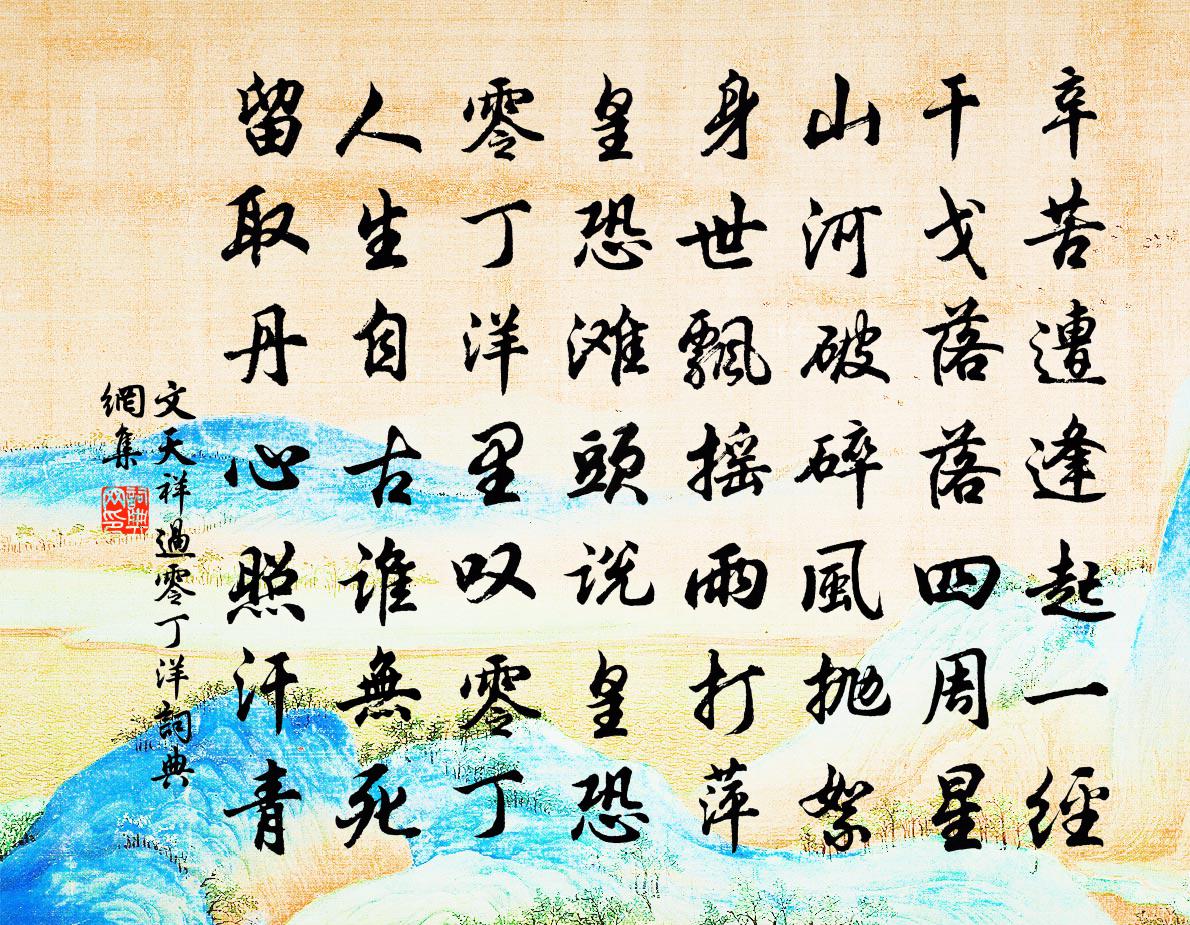 辛苦遭逢起一經
干戈落落四周星
山河破碎風抛絮
身世飄摇雨打萍
皇恐滩頭说皇恐
零丁洋里叹零丁
人生自古谁無死
留取丹心照汗青
文天祥過零丁洋詞典
網集
詞典
网印